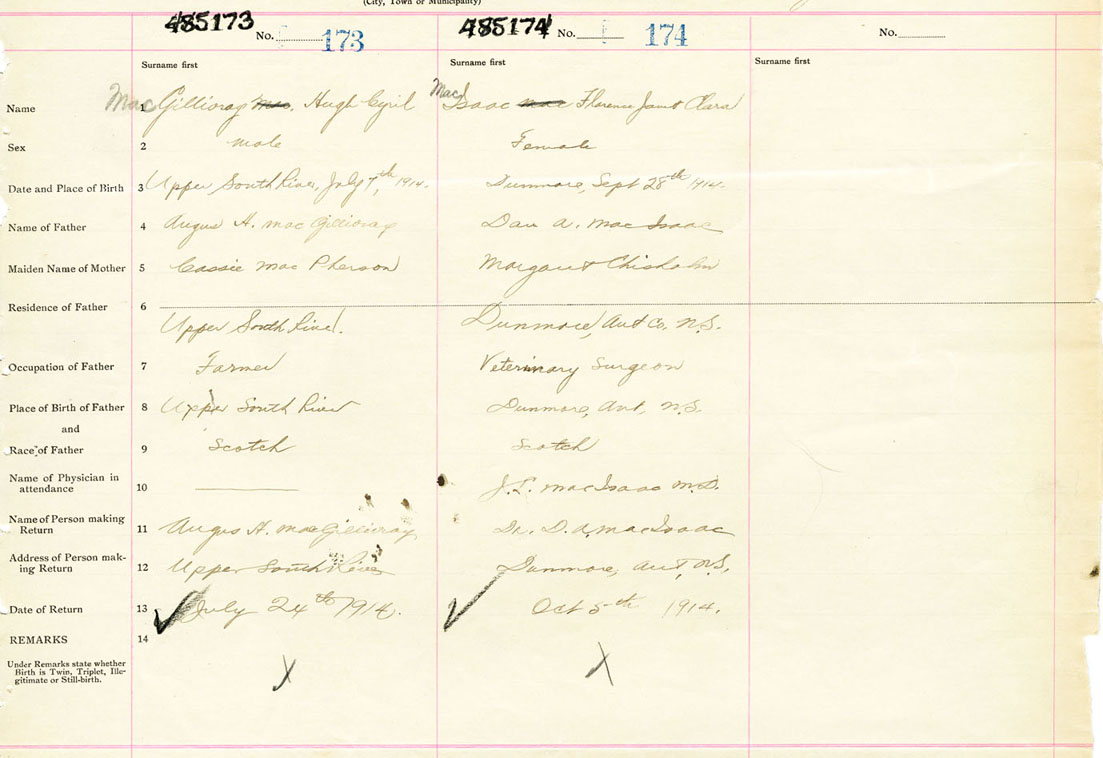 (City, Town or Municipality)
485173 No. 173 485174 No. 174 No.
Surname first Surname first Surname first
Name 1 MacGillivray Mac, Hugh Cyril MacIsaac Mac Florence Janet Clara
Sex 2 male Female
Date and Place of Birth 3 Upper South River, July 7th, 1914. Dunmore, Sept 28th 1914.
Name of Father 4 Angus H. MacGillivray Dan A. MacIsaac
Maiden Name of Mother 5 Cassie MacPherson Margaret Chisholm
Residence of Father 6
Upper South River. Dunmore, Ant Co. N.S.
Occupation of Father 7 Farmer Veterinary Surgeon
Place of Birth of Father 8 Upper South River Dunmore, Ant, N.S.
and
Race of Father 9 Scotch Scotch
Name of Physician in
attendance 10 J.L. MacIsaac M.D.
Name of Person making
Return 11 Angus H. MacGillivray Dr. D.A. MacIsaac
Address of Person mak-
ing Return 12 Upper South River Dunmore, Ant, N.S.
Date of Return 13 July 24th 1914. Oct 5th 1914.
REMARKS 14
Under Remarks state whether
Birth is Twin, Triplet, Ille-
gitimate or Still-birth. X X